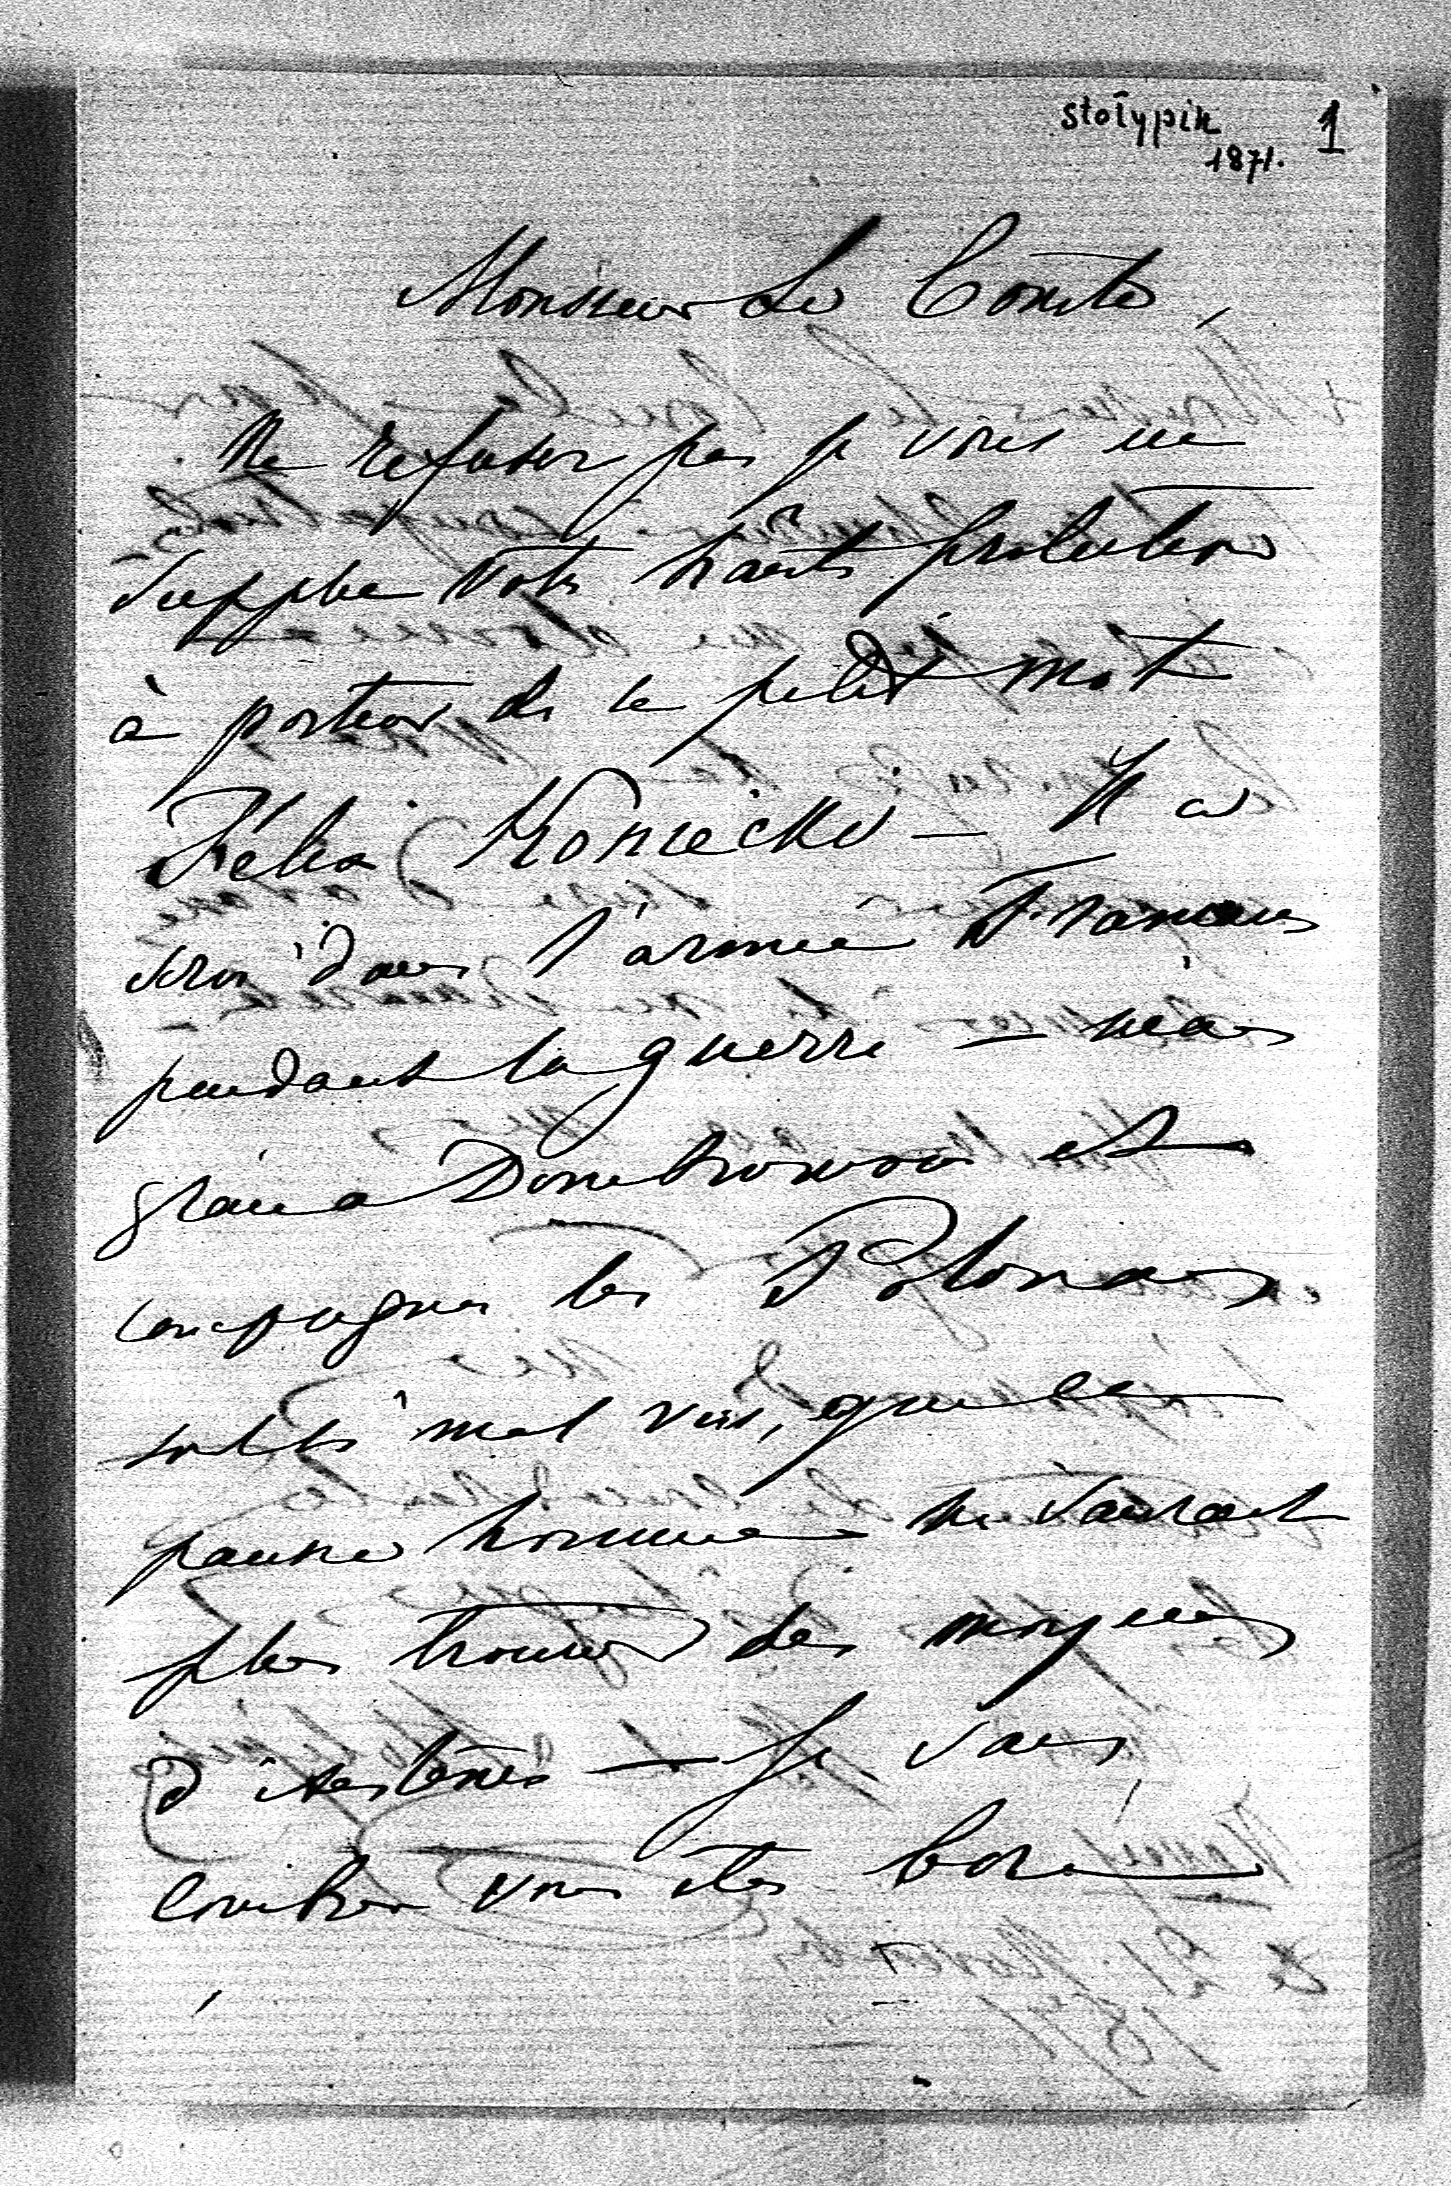 Stolypin 1
1871.
Monsieur Le Comte,
Ne refusez pas je vous en
supplie votre haute protection
à porteur de ce petit mot
Félix Koniecki — Il a
servi dans l'armée Française
pendant la guerre — mais
grâce a Dombrowski et
compagnie les Polonais
sont si mal vus, que ce
pauvre homme ne saurait
plus trouver des moyens
d'existence — Je vous
 vous êtes bon